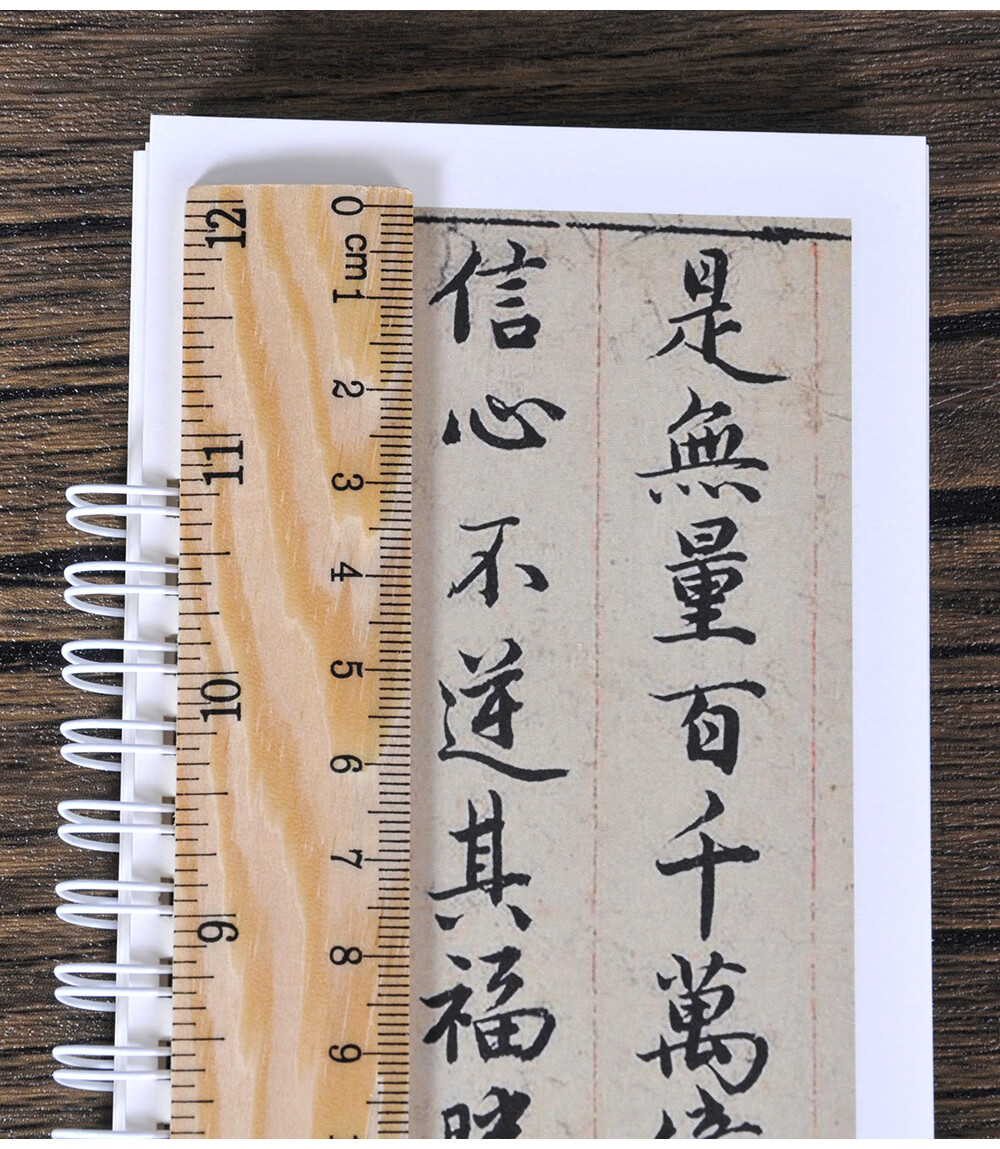 是無量百千萬
信心不逆其福
0 cm 1 2 3 4 5 6 7 8 9
12 11 10 9